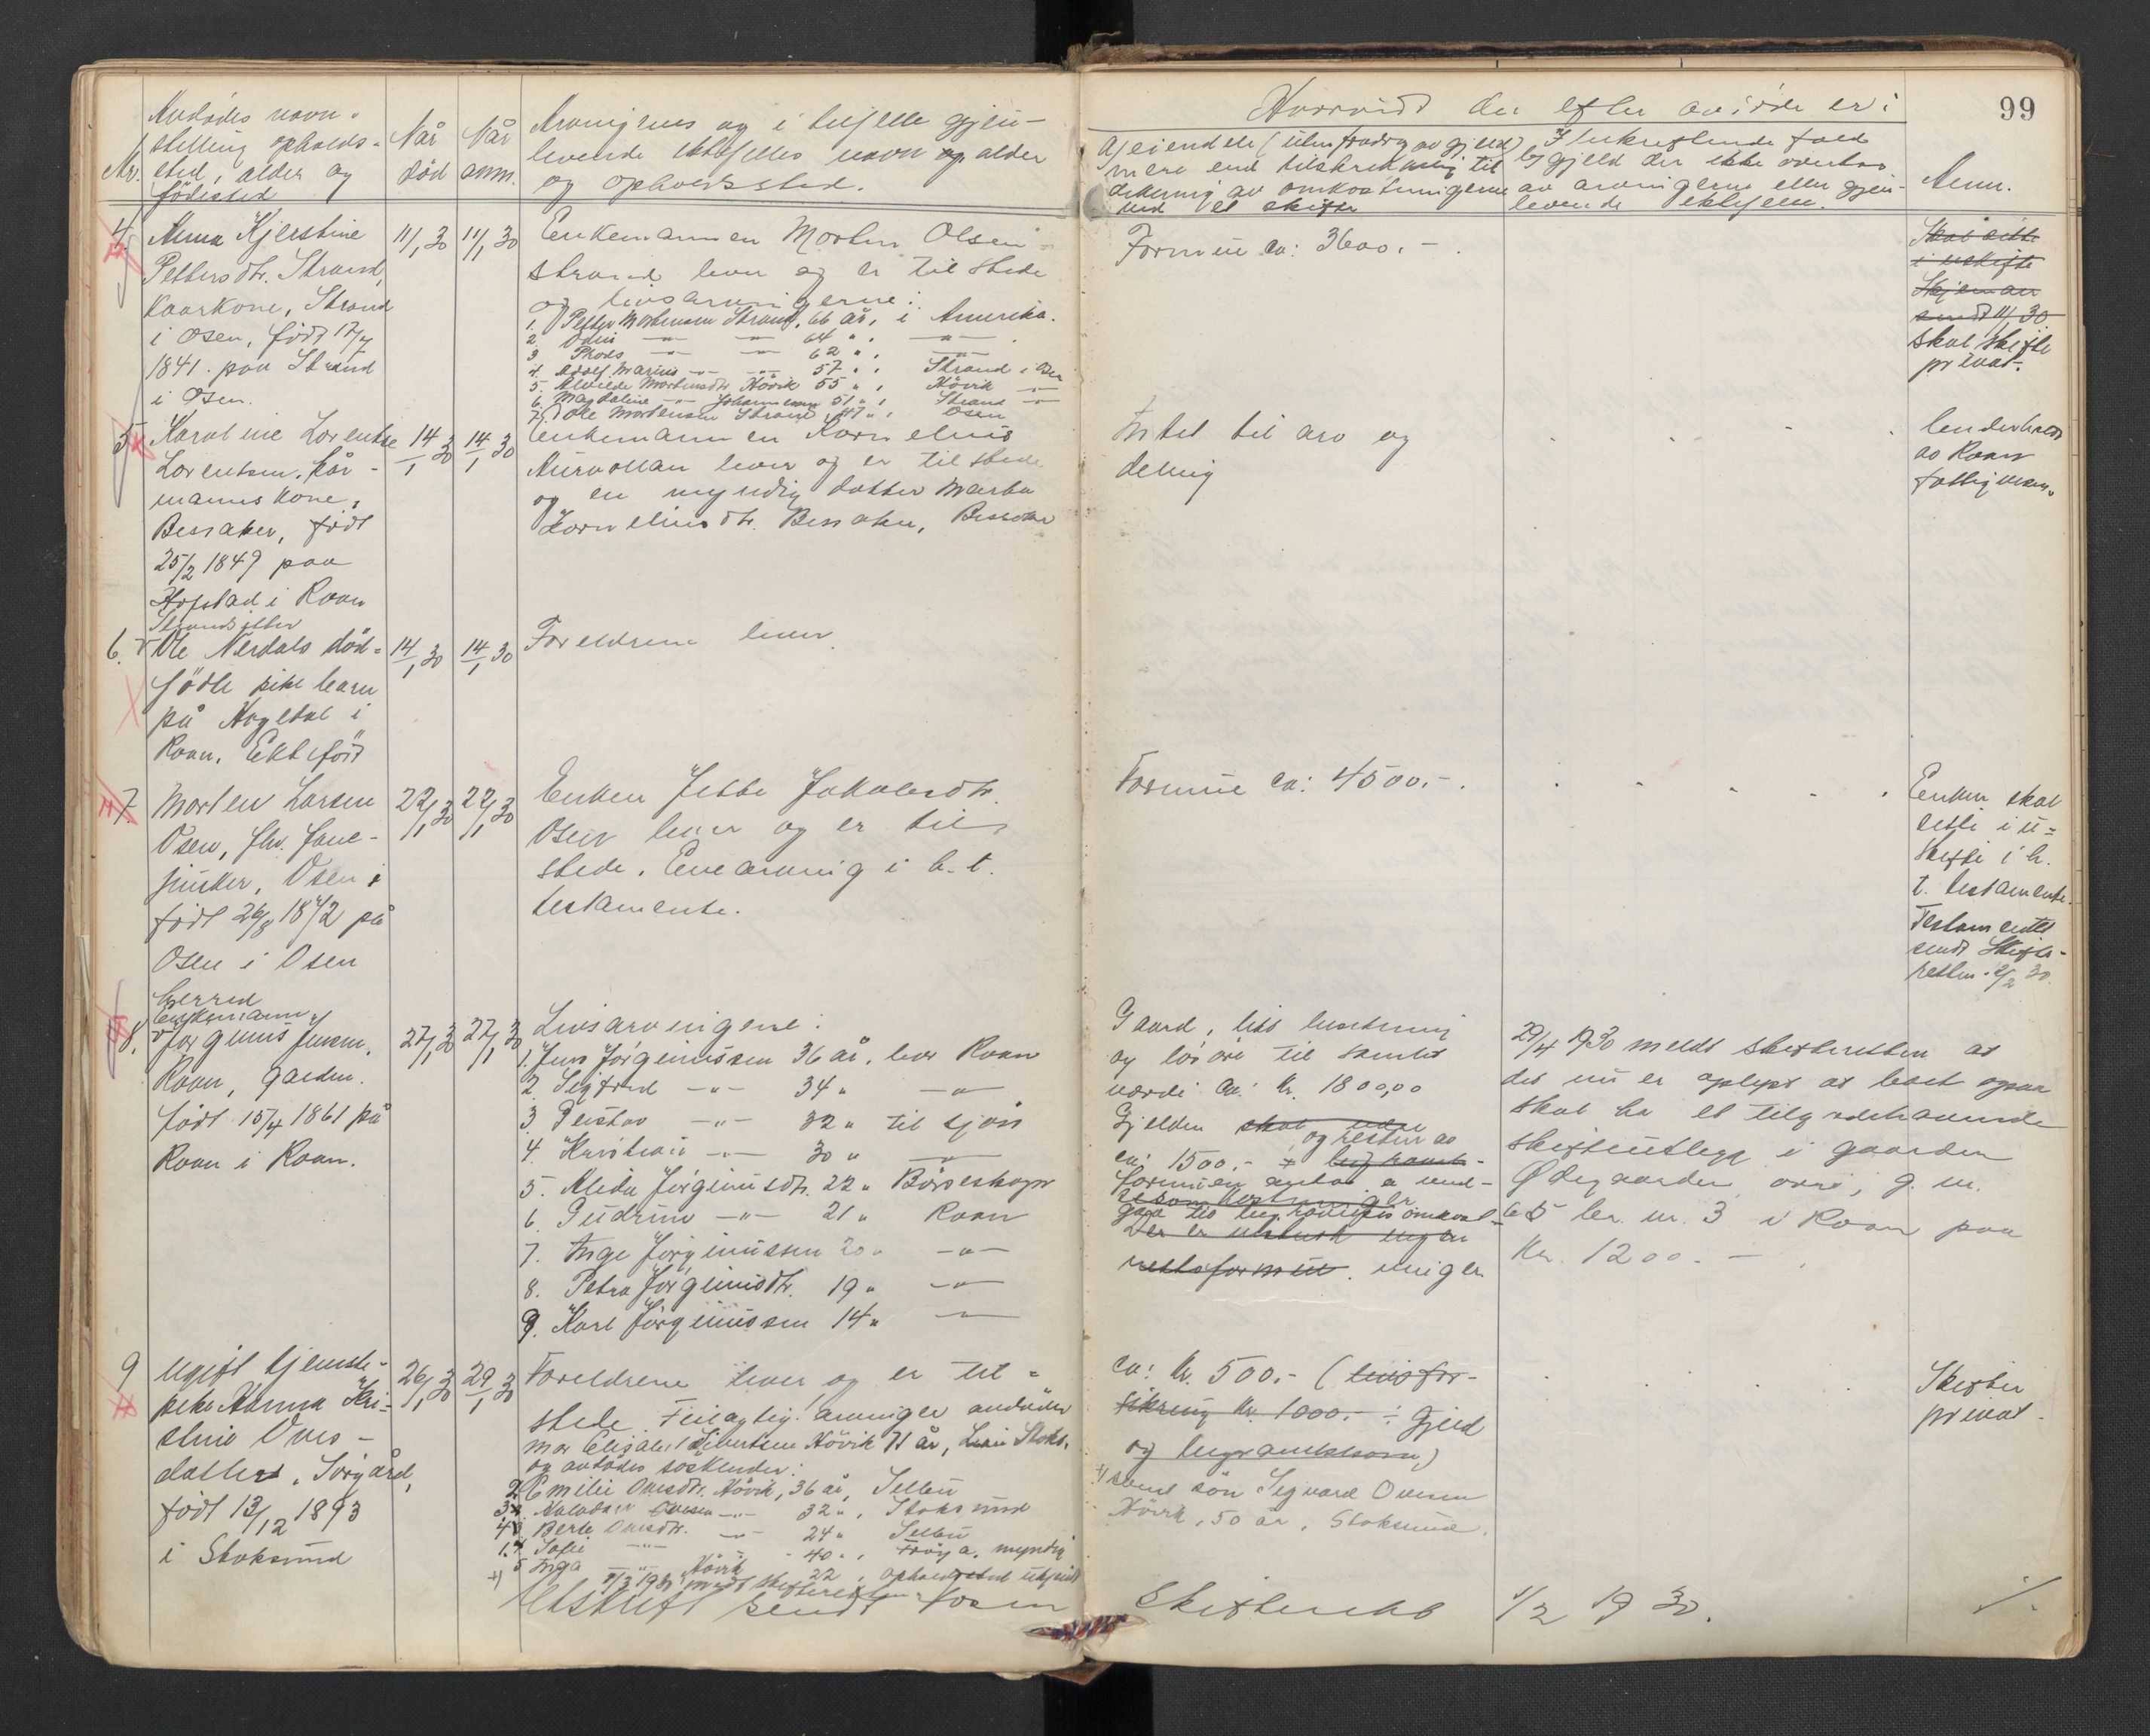 99
Nr.
Avdødes navn,
stilling opholds-
sted, alder og
fødested
Når
död
Når
anm.
Arvingenes og i tilfelle gjen-
levende ektefelles navn og alder
og opholdssted.
Hvorvidt der efter avdøde er:
a) eiendele (uten fradrag av gjeld)
mere end tilstrekkelig til
dekning av omkostningene
ved et skifte
b) gjeld der ikke overtas
av arvingerne eller gjen-
levende ektefelle.
Anm.
4
Anna Kjerstine
Pettersdtr. Strand,
Kaarkone, Strand
i Osen, født 17/7
1841 paa Strand
i Osen.
11/1 30
11/1 30
Enkemannen Morten Olsen
Strand lever og er tilstede
og livsarvingerne:
1. Petter Mortensen Strand, 66 år, i Amerika.
2. Odin -"- -"- 64 " , -"-
3. -"- -"- 62 " , -"-
4. Adolf Marius -"- -"- 57 " , Strand i Osen
5. Alvilde Mortensdtr. Hövik 55 " , Hövik -"-
6. Magdalene -"- Johannesen 51 " , Strand -"-
7. Ole Mortensen Strand, 47 " , Osen
Formue ca: 3600.-
Skal sitte
i uskifte
Skjema
sendt 11/1 30
skal skifte
privat.
5
Karoline Lorentse
Lorentsen, kår-
manns kone,
Bessaker, født
25/2 1849 paa
Hofstad i Roan
14/1 30
14/1 30
Enkemannen Kornelius
lever og er tilstede
og en myndig datter Marta
Korneliusdtr. Bessaker, Bessaker
Intet til arv og
deling
Underholdt
av Roan
fattigvesen.
6.
Strandsitter
Ole Nerdals död-
födte pikebarn
på Hogstad i
Roan. Ektefødt
14/1 30
14/1 30
Foreldrene lever
7.
Morten Larsen
Osen, fhv. fane-
junker, Osen i
født 26/8 1842 på
Osen i Osen
herred
22/1 30
22/1 30
Enken Jebbe Jakobsdtr.
Osen lever og er til
stede. Enearving i h.t.
testamente.
Formue ca: 4500.-
Enken skal
sitte i u-
skifte i h.
t. testamente.
Testamentet
sendt Skifte-
retten 2/2 30.
8.
Enkemann
Jørginus Jensen,
Roan, Gaardm.
født 15/4 1861 på
Roan i Roan.
27/1 30
27/1 30
Livsarvingene:
1. Jens Jörginussen 36 år, bor Roan
2. Sigfred -"- 34 " -"-
3. Gustav -"- 32 " til sjøs
4. Kristian -"- 30 " -"-
5. Alida Jörginusdtr. 22 " Börseskogn
6. Gudrun -"- 21 " Roan
7. Inga Jörginussen 20 " -"-
8. Petra Jörginusdtr. 19 " -"-
9. Karl Jörginussen 14 " -"-
Gaard, litt besetning
og lösöre til samlet
værdi ca: Kr. 1800,00
Gjelden skal være
ca: 1500.- og resten av
formuen antas a med-
gaa til begravelses omkost-
Der er antatt ingen
nettoformue. ninger
29/4 1930 meldt skifteretten at
det nu er oplyst at boet ogsaa
skal ha et tilgodehavende
skifteutlegg i gaarden
Ødegaarden övre, g. nr.
65 br. nr. 3 i Roan paa
Kr. 1200.-
9
Ugift tjeneste-
pike Hanna Kri-
stine Oves-
datter, Sörgård,
født 13/12 1893
i Stoksund
26/1 30
29/1 30
Foreldrene lever og er til-
stede. Feilagtig. arvinger avdødes
mor Elisabet Sivertsen Hövik 71 år, Stoks.
og avdødes søskender:
2. Emilie Ovesdtr. Hövik, 36 år, Selbu
3. Ovesen -"- 32 " , Stoksund
4. Berte Ovesdtr. -"- 24 " Selbu
1. Sofie -"- -"- 40 " , Fröya. myndig
5 Inga -"- Hövik 22 , opholdssted ukjendt
meldt skifteretten
ca: kr. 500.- (livsfor-
sikring kr. 1000.- ÷ gjeld
og begravelsesom)
+) samt sön Sigvard Ovesen
Hövik, 50 år, Stoksund.
Skifter
privat.
Utskrift sendt Fosen Skifterett 1/2 1930.